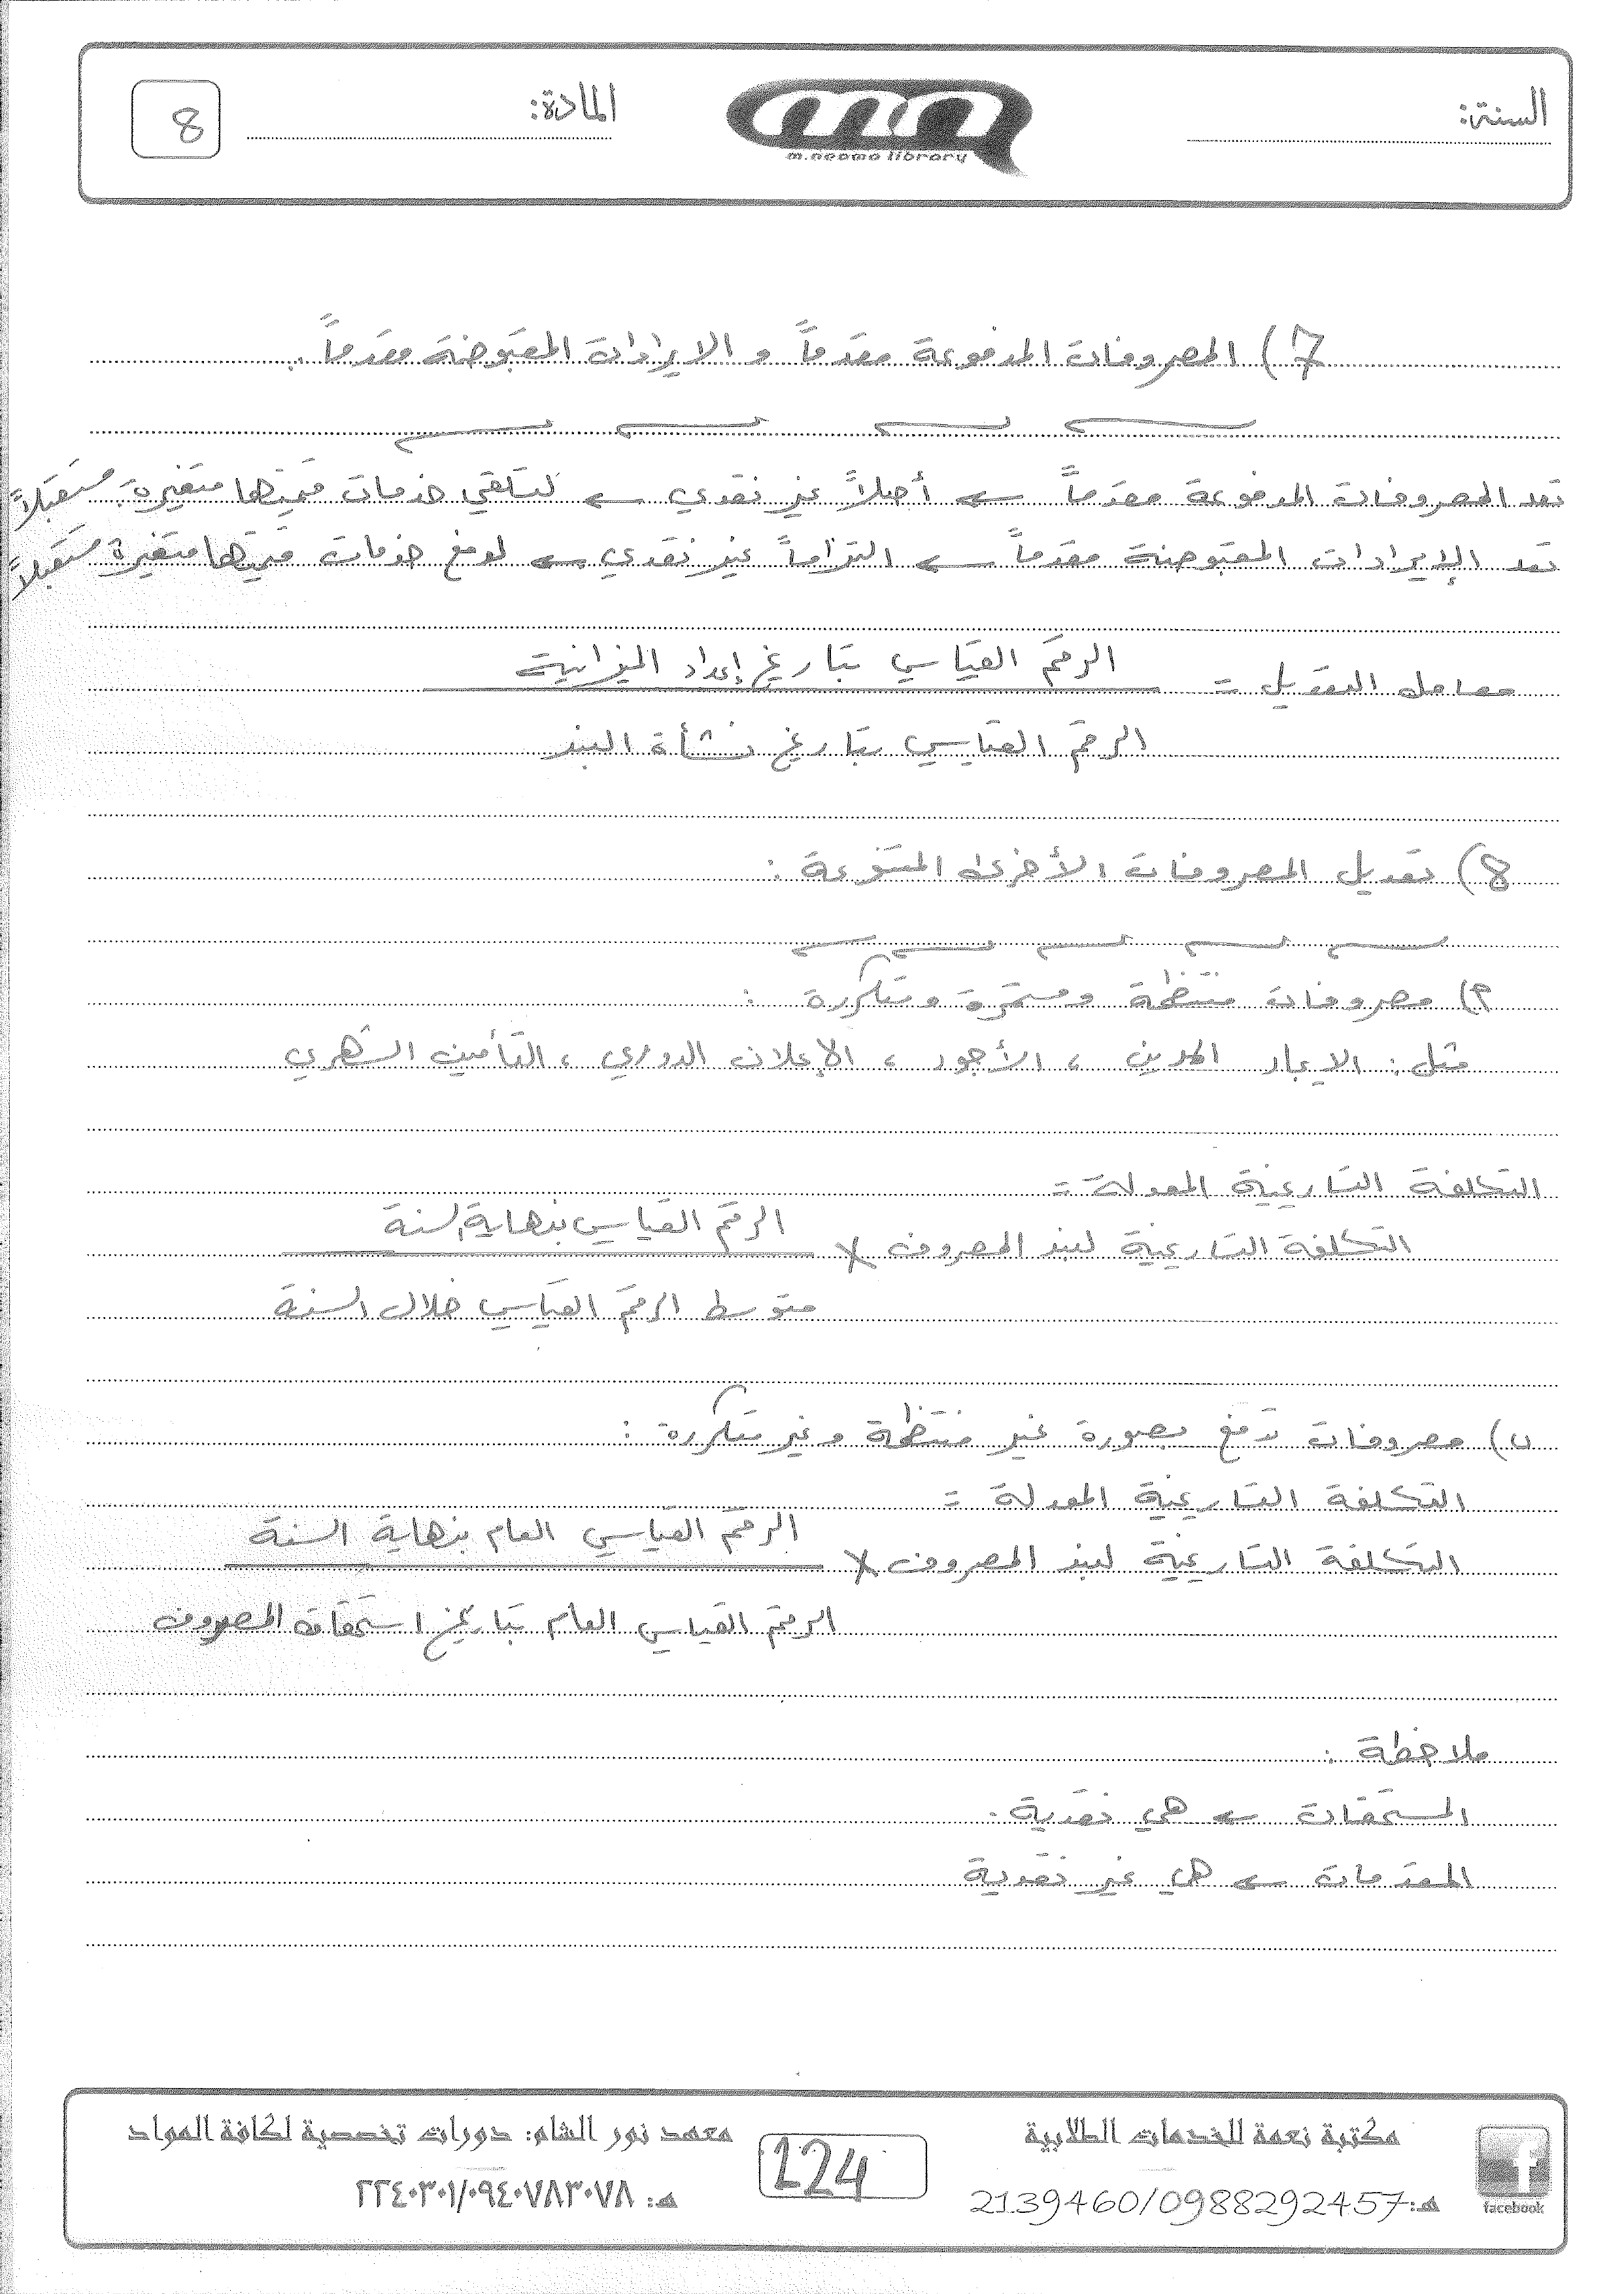 السنة:
m.neama library
المادة:
8
7) المصروفات المدفوعة مقدماً و الايرادات المقبوضة مقدماً .
تعد المصروفات المدفوعة مقدماً ← أصلاً غير نقدي ← لتلقي خدمات قيمتها متغيرة مستقبلاً
تعد الإيرادات المقبوضة مقدماً ← التزاماً غير نقدي ← لدفع خدمات قيمتها متغيرة مستقبلاً
الرقم القياسي بتاريخ إعداد الميزانية
معامل التعديل =
الرقم القياسي بتاريخ نشأة البند
8) تعديل المصروفات الأخرى المتنوعة :
أ) مصروفات منتظمة ومستمرة ومتكررة :
مثل : الايجار المدين ، الأجور ، الإعلان الدوري ، التأمين الشهري
التكلفة التاريخية المعدلة =
الرقم القياسي بنهاية السنة
التكلفة التاريخية لبند المصروف ×
متوسط الرقم القياسي خلال السنة
ب) مصروفات تدفع بصورة غير منتظمة وغير متكررة :
التكلفة التاريخية المعدلة =
الرقم القياسي العام بنهاية السنة
التكلفة التاريخية لبند المصروف ×
الرقم القياسي العام بتاريخ استحقاق المصروف
ملاحظة :
المستحقات ← هي نقدية .
المقدمات ← هي غير نقدية
مكتبة نعمة للخدمات الطلابية
هـ: 2139460/0988292457
facebook
124
معهد نور الشام: دورات تخصصية لكافة المواد
هـ: ٢٢٤٠٣٠١/٠٩٤٠٧٨٣٠٧٨